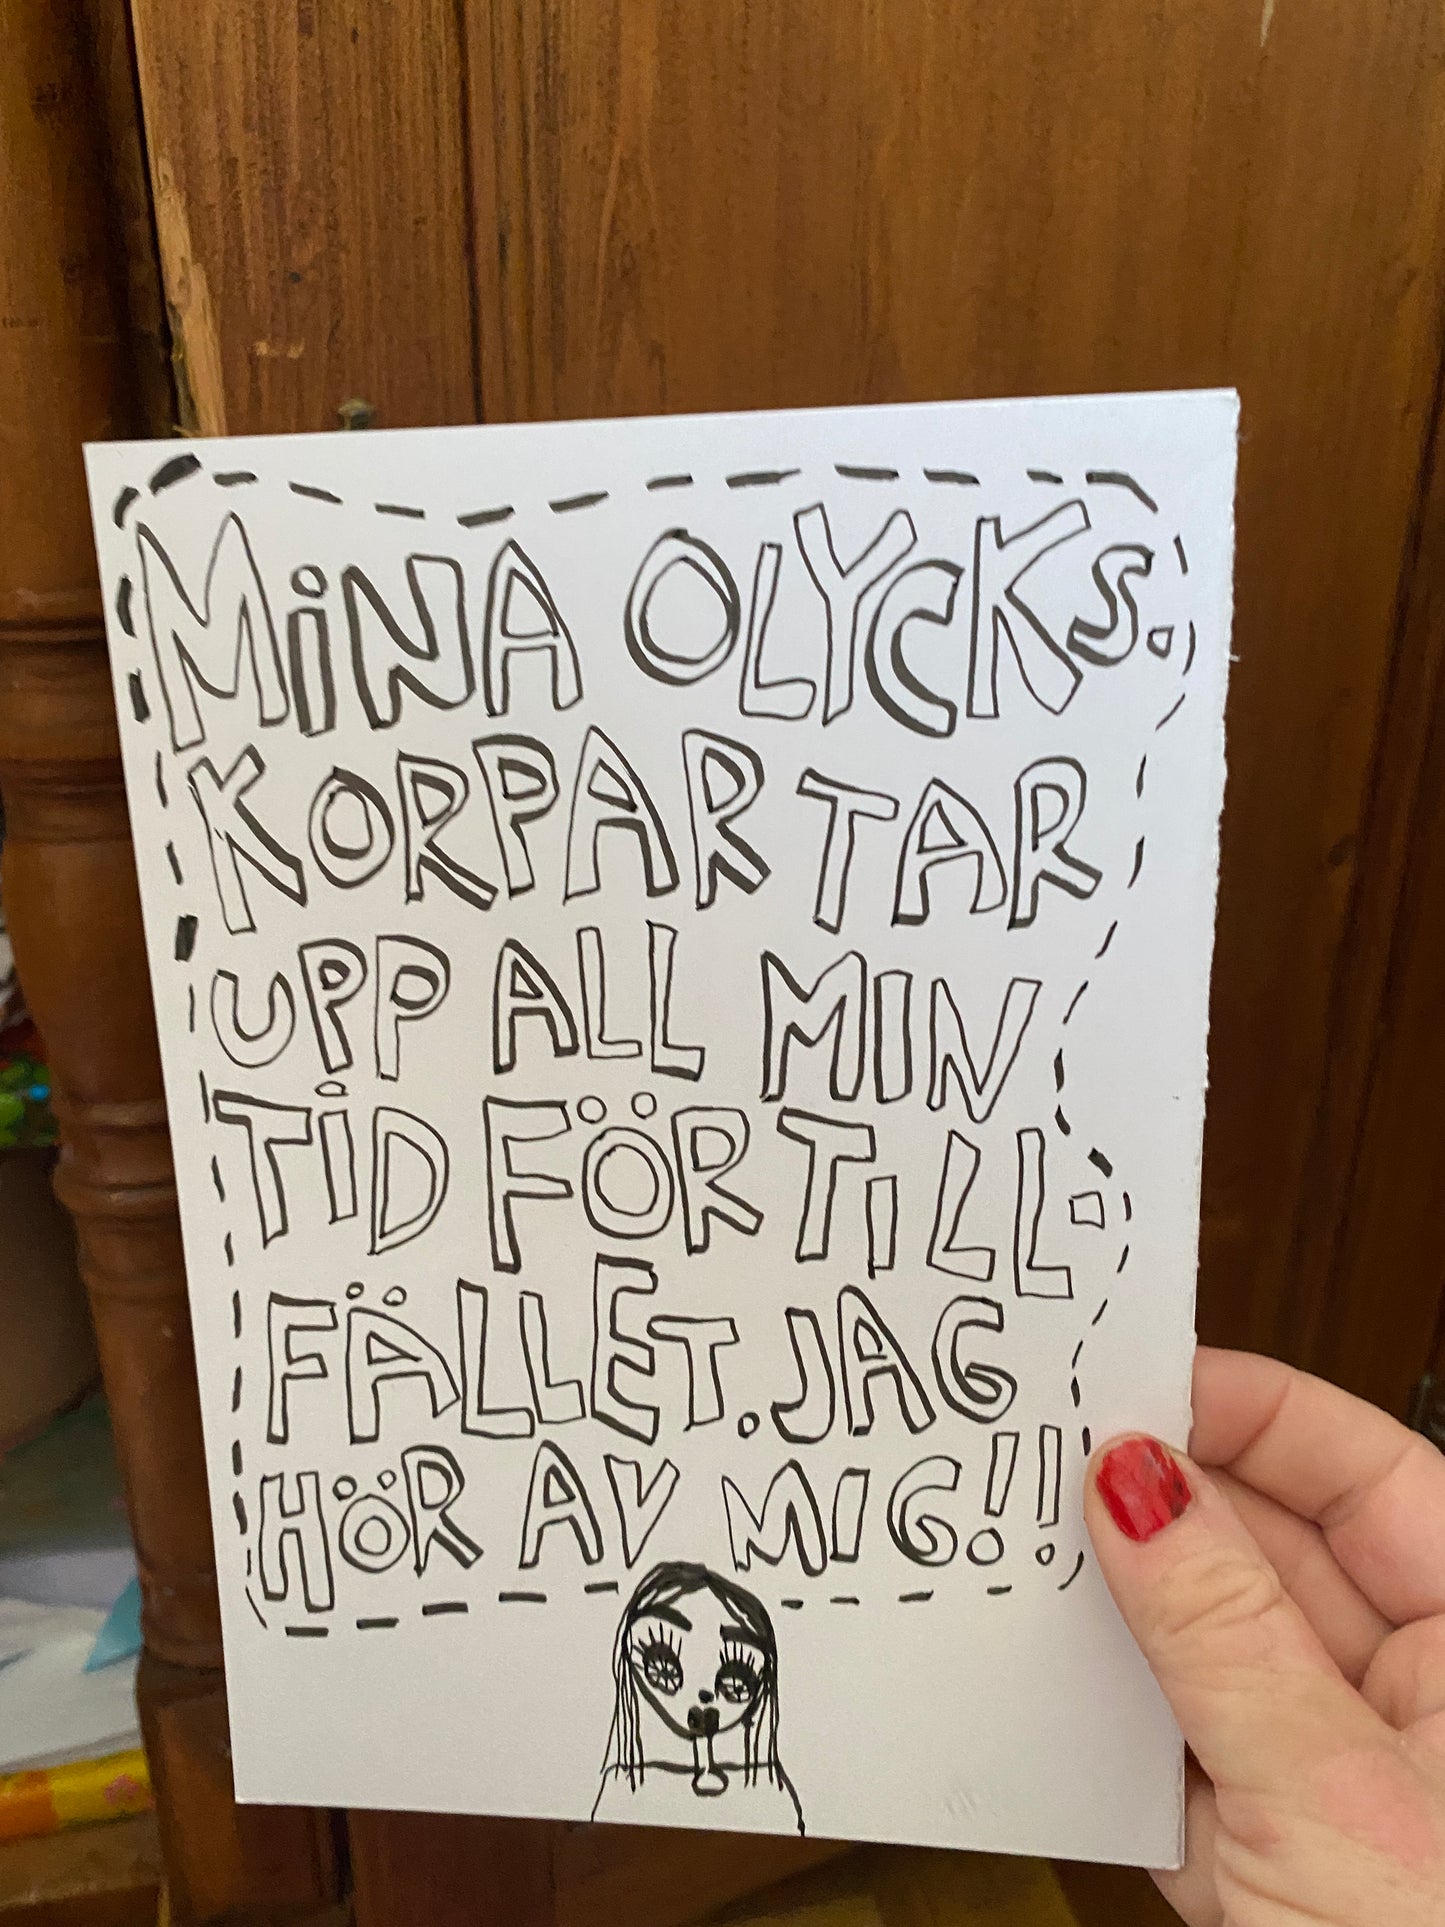 MINA OLYCKS.
KORPAR TAR
UPP ALL MIN
TID FÖR TILL.
FÄLLET. JAG
HÖR AV MIG!!